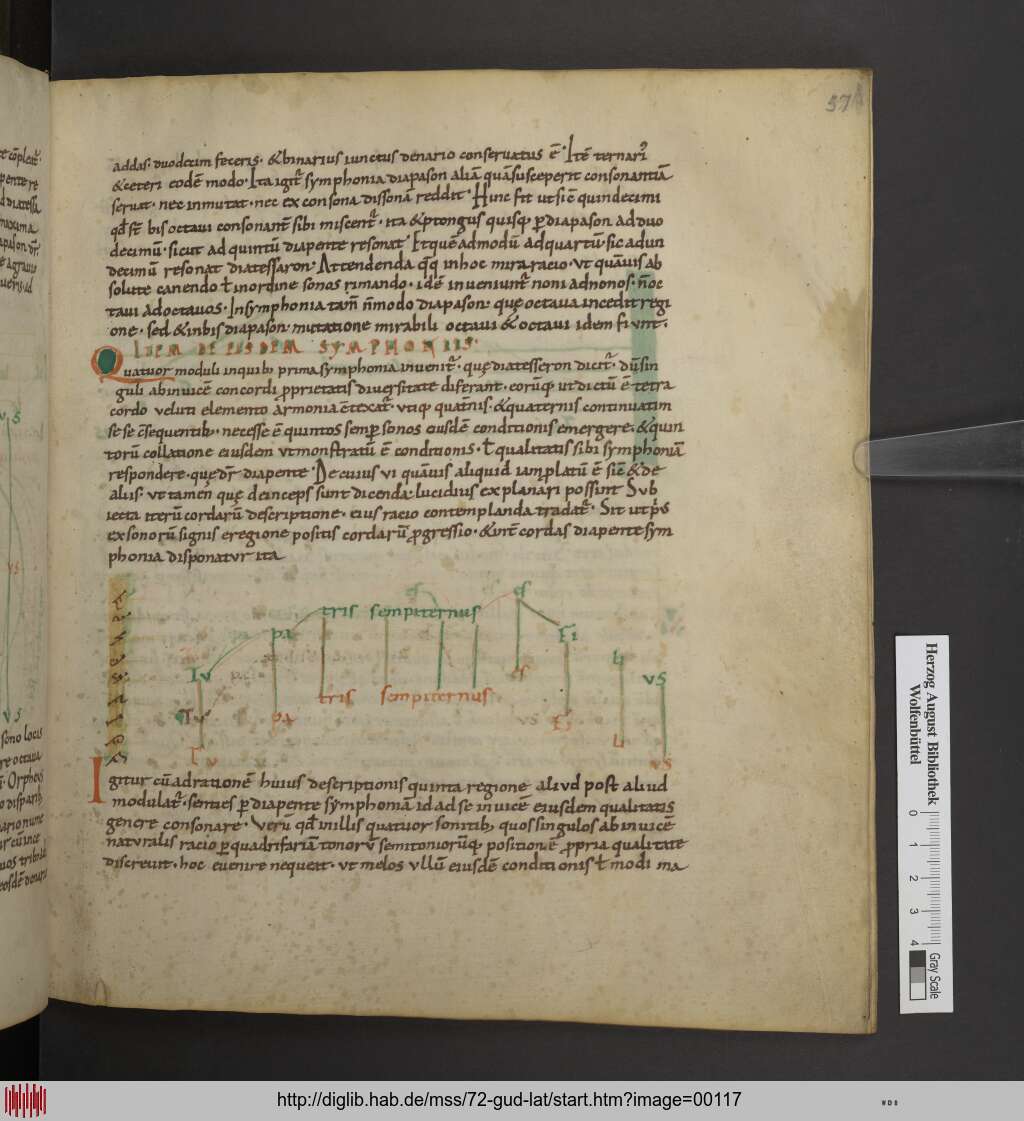 57
addas. duodecim feceris. &binarius iunctus denario conseruatus ē. Itē ternari᷑
&ceteri eodē modo. Ita igit᷑ symphonia diapason aliā quāsusceperit consonantiā
seruat. nec inmutat. nec ex consona dissonā reddit. Hinc fit ut siē quindecimi
qđ st̄ bis octaui consonant̄ sibi miscent᷑. ita &ptongus quisq; p̄diapason ad duo
decimū. sicut ad quintū diapente resonat. Etquēadmodū adquartū. sic adun
decimū resonat diatessaron. Attendenda q̄q; inhoc mira racio. vt quāuis ab
solute canendo ł inordine sonos rimando. idē inueniunt᷑ noni adnonos. n̄oc
taui adoctauos. Insymphonia tam̄ n̄modo diapason. quę octaua inceditregi
one. sed &inbis diapason mutatione mirabili octaui & octaui idem fiunt.
ITEM DE EISDEM SYMPHONIIS.
Quatuor moduli inquib; prima symphonia inuenit᷑. quę diatesseron dicit᷑. dū sin
guli abinuicē concordi p̄prietatis diuersitate diferant. eorūq; ut dictū ē tetra
cordo veluti elemento armonia c̄texat᷑. utiq; quat̄nis. &quaternis continuatim
se se c̄sequentib; necesse ē quintos semp̄ sonos eiusdē conditionis emergere. &quin
torū collatione eiusdem vtmonstratū ē conditionis. ł qualitatis sibi symphoniā
respondere. quę dr̄ diapente. De cuius vi quāuis aliquid iam p̄latū ē siē & de
aliis. ut tamen quę deinceps sunt dicenda. lucidius explanari possint Sub
iecta iterū cordarū descriptione. eius racio contemplanda tradat᷑. Sit ut p̄s
exsonorū signis eregione positis cordarū p̄gressio. &int̄ cordas diapente sym
phonia disponatur ita
es
tris sempiternus
pa
Fi
Tu
li
us
es
tris sempiternus
Tu
pa
us
Fi
li
Tu
us
Igitur cū adrationē huius descriptionis quinta regione aliud post aliud
modulat᷑. senties p̄ diapente symphoniā id ad se inuicē eiusdem qualitatis
genere consonare. Verū qđ inillis quatuor sonitib; quos singulos abinuicē
naturalis racio p̄ quadrifariā tonorū semitoniorūq; positionē p̄pria qualitate
discreuit. hoc euenire nequeat. ut melos ullū eiusdē conditionis ł modi ma
Herzog August Bibliothek
Wolfenbüttel
0 1 2 3 4
Gray Scale
http://diglib.hab.de/mss/72-gud-lat/start.htm?image=00117